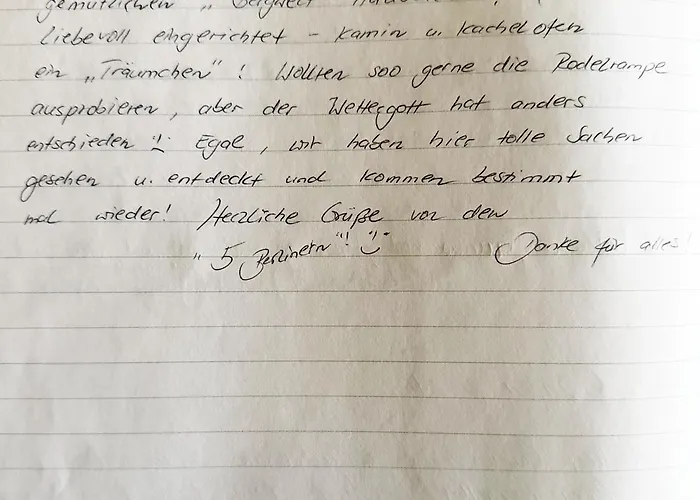 gemütlichen "
liebevoll eingerichtet - Kamin u. Kachelofen
ein „Träumchen"! Wollten soo gerne die Rodelrampe
ausprobieren, aber der Wettergott hat anders
entschieden :( Egal, wir haben hier tolle Sachen
gesehen u. entdeckt und kommen bestimmt
mal wieder! Herzliche Grüße von den
"5 Berlinern"! :)
Danke für alles!